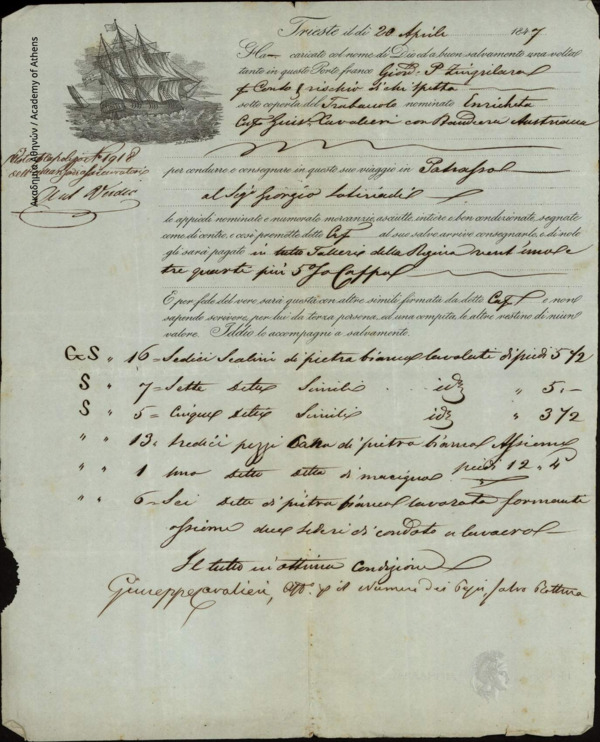 Trieste il dì 20 Aprile 1847
Ha caricato col nome di Dio ed a buon salvamento una volta
tanto in questo Porto franco Giov: P. Zingrilara
p Conto, e rischio di chi spetta
sotto coperta del Trabacolo nominato Enricheta
Cap Giusᵉ Cavalieri con Bandiera Austriaca
per condurre e consegnare in questo suo viaggio in Patrasso
al Sigʳ Giorgio Sotiriadi
le appiedi nominate e numerate mercanzie, asciutte, intiere e ben condizionate, segnate
come di contro, e così promette detto Cap al suo salvo arrivo consegnarle, e di nolo
gli sarà pagato in tutto Talleri della Regina vent'uno e
tre quarti più 5 % Cappa
E per fede del vero sarà questa con altre simili firmata da detto Cap e non
sapendo scrivere, per lui da terza persona, ed una compita, le altre restino di niun
valore. Iddio lo accompagni a salvamento.
G S " 16 = Sedici Scalini di pietra bianca lavorati di piedi 5 1/2
S " 7 = Sette Dette Simili id " 5. -
S " 5 = Cinque Dette Simili id " 3 1/2
" " 13 = Tredici pezzi di pietra bianca Assieme
" " 1 uno Detto Detta di macigno piedi 12 " 4
" " 6 = Sei Dette di pietra bianca lavorata formanti
assieme due
Il tutto in ottima Condizione
Giuseppe Cavalieri, il Numero dei Pezzi, salvo Rottura
No 1918
Ακαδημία Αθηνών / Academy of Athens